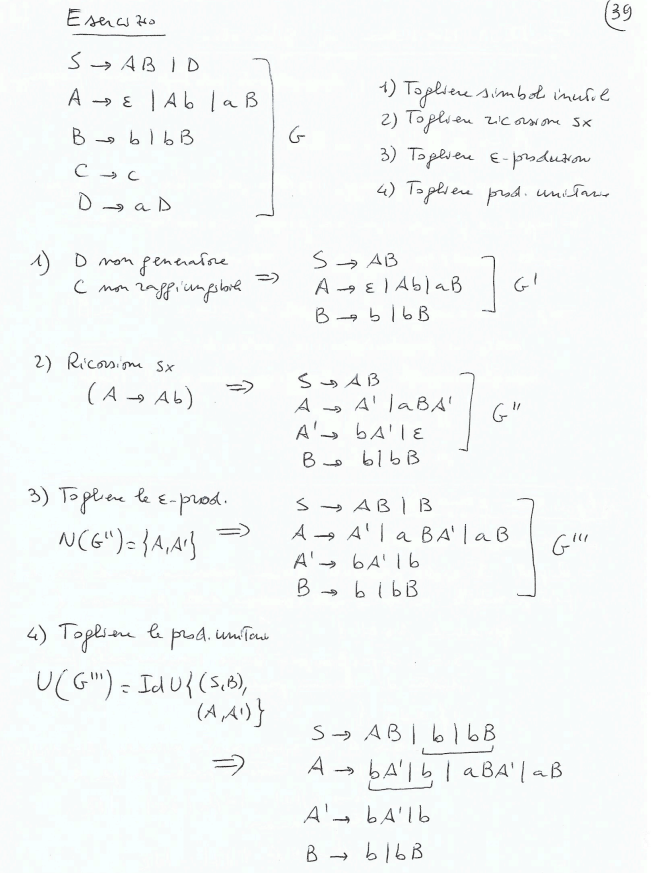 Esercizio
39
S → AB | D
A → ε | Ab | aB
B → b | bB
C → c
D → aD
G
1) Togliere simboli inutili
2) Togliere ricorsione sx
3) Togliere ε-produzioni
4) Togliere prod. unitarie
1) D non generatore
C non raggiungibile ⇒
S → AB
A → ε | Ab | aB
B → b | bB
G'
2) Ricorsione sx
(A → Ab) ⇒
S → AB
A → A' | aBA'
A' → bA' | ε
B → b | bB
G''
3) Togliere le ε-prod.
N(G'') = {A, A'} ⇒
S → AB | B
A → A' | a BA' | aB
A' → bA' | b
B → b | bB
G'''
4) Togliere le prod. unitarie
U(G''') = Id U {(S,B),
(A,A')}
⇒
S → AB | b | bB
A → bA' | b | aBA' | aB
A' → bA' | b
B → b | bB